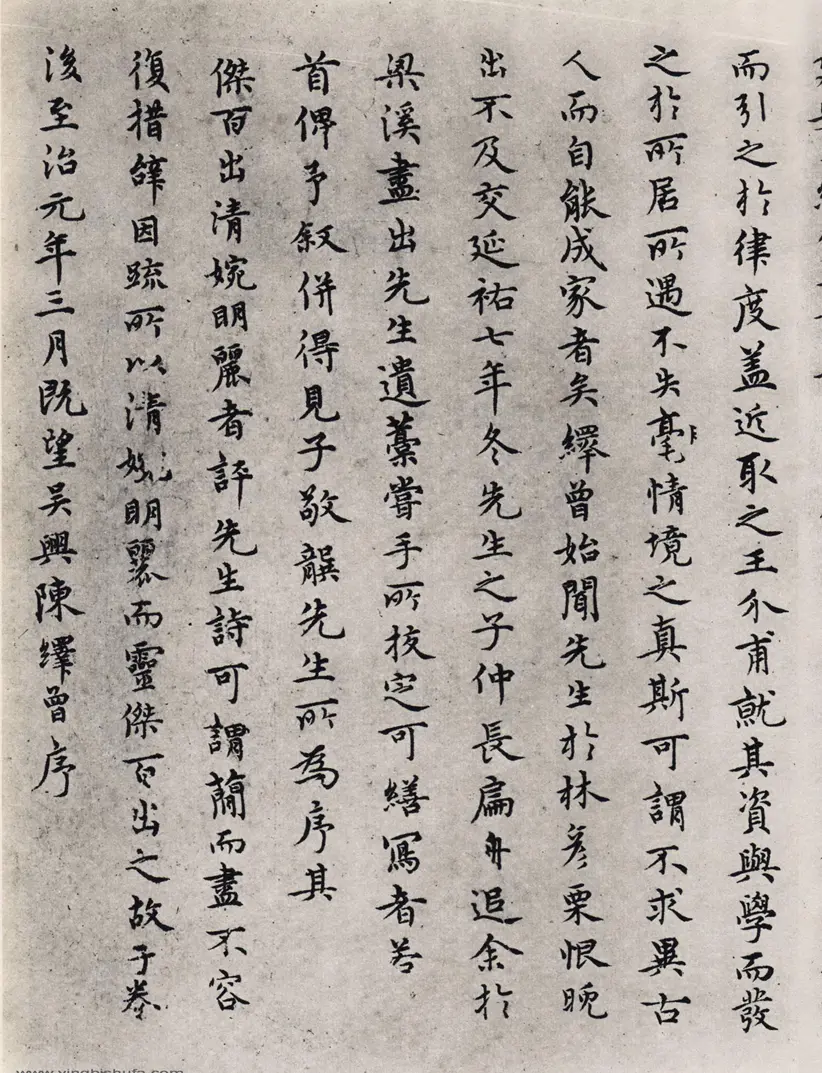 而引之於律度盖近取之王介甫就其資與學而發
之於所居所遇不失毫情境之真斯可謂不求異古
人而自能成家者矣繹曾始聞先生於林彦栗恨晚
出不及交延祐七年冬先生之子仲長扁舟追余於
梁溪盡出先生遺藁嘗手所挍定可繕寫者若
首俾予叙併得見子敬龔先生所為序其
傑百出清婉明麗者評先生詩可謂蕳而盡不容
復措辞因疏所以清婉明麗而靈傑百出之故于卷
後至治元年三月既望吴興陳繹曾序
www.yingbishufa.com